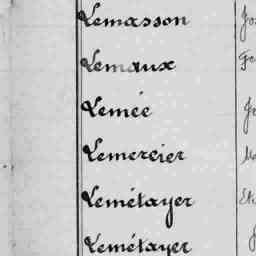 Lemasson
Lemaux
Lemée
Lemercier
Lemétayer
Lemétayer